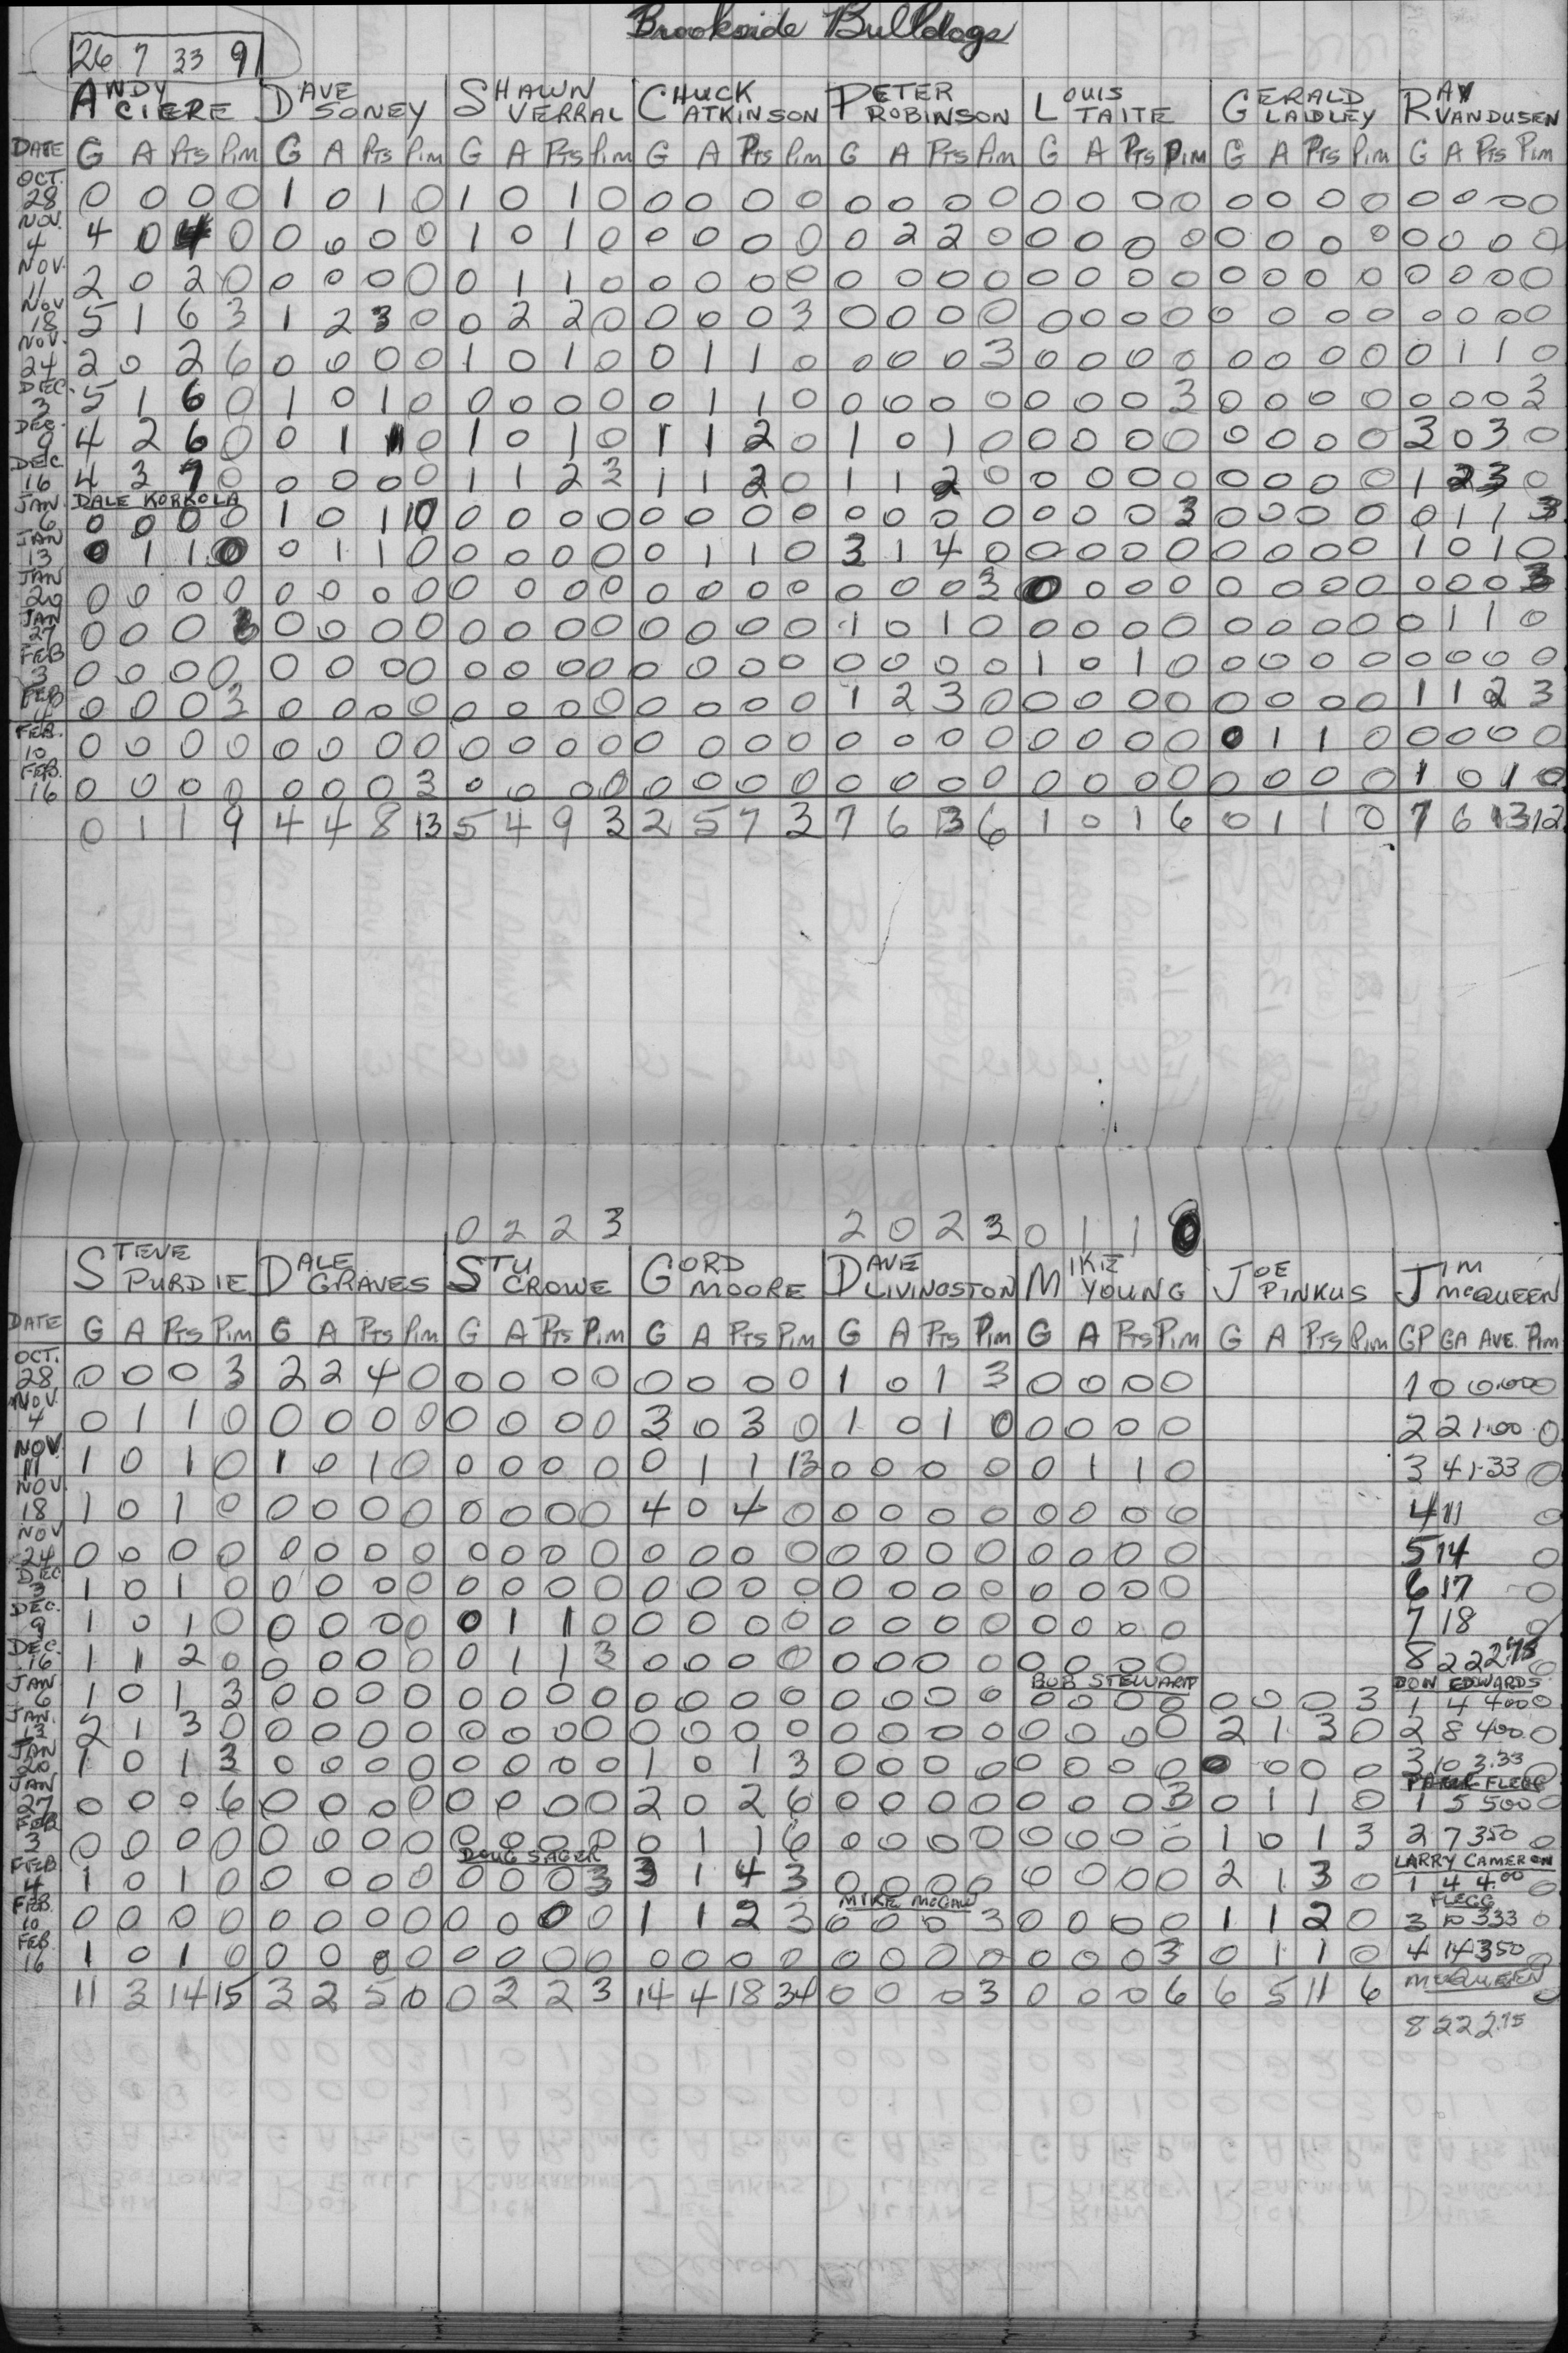 Brookside Bulldogs
26 7 33 9
ANDY CIERE DAVE SONEY SHAWN VERRAL CHUCK ATKINSON PETER ROBINSON LOUIS TAITE GERALD LAIDLEY RAY VANDUSEN
DATE G A Pts Pim G A Pts Pim G A Pts Pim G A Pts Pim G A Pts Pim G A Pts Pim G A Pts Pim G A Pts Pim
OCT. 28 0 0 0 0 1 0 1 0 1 0 1 0 0 0 0 0 0 0 0 0 0 0 0 0 0 0 0 0 0 0 0 0
NOV. 4 4 0 4 0 0 0 0 0 1 0 1 0 0 0 0 0 0 2 2 0 0 0 0 0 0 0 0 0 0 0 0 0
NOV. 11 2 0 2 0 0 0 0 0 0 1 1 0 0 0 0 0 0 0 0 0 0 0 0 0 0 0 0 0 0 0 0 0
NOV 18 5 1 6 3 1 2 3 0 0 2 2 0 0 0 0 3 0 0 0 0 0 0 0 0 0 0 0 0 0 0 0 0
NOV. 24 2 0 2 6 0 0 0 0 1 0 1 0 0 1 1 0 0 0 0 3 0 0 0 0 0 0 0 0 0 1 1 0
DEC. 3 5 1 6 0 1 0 1 0 0 0 0 0 0 1 1 0 0 0 0 0 0 0 0 3 0 0 0 0 0 0 0 3
DEC. 9 4 2 6 0 0 1 1 0 1 0 1 0 1 1 2 0 1 0 1 0 0 0 0 0 0 0 0 0 3 0 3 0
DEC 16 4 3 7 0 0 0 0 0 1 1 2 3 1 1 2 0 1 1 2 0 0 0 0 0 0 0 0 0 1 2 3 0
DALE KORKOLA
JAN 6 0 0 0 0 1 0 1 10 0 0 0 0 0 0 0 0 0 0 0 0 0 0 0 3 0 0 0 0 0 1 1 3
JAN 13 0 1 1 0 0 1 1 0 0 0 0 0 0 1 1 0 3 1 4 0 0 0 0 0 0 0 0 0 1 0 1 0
JAN 20 0 0 0 0 0 0 0 0 0 0 0 0 0 0 0 0 0 0 0 3 0 0 0 0 0 0 0 0 0 0 0 3
JAN 27 0 0 0 3 0 0 0 0 0 0 0 0 0 0 0 0 1 0 1 0 0 0 0 0 0 0 0 0 0 1 1 0
FEB 3 0 0 0 0 0 0 0 0 0 0 0 0 0 0 0 0 0 0 0 0 1 0 1 0 0 0 0 0 0 0 0 0
FEB 4 0 0 0 3 0 0 0 0 0 0 0 0 0 0 0 0 1 2 3 0 0 0 0 0 0 0 0 0 1 1 2 3
FEB. 10 0 0 0 0 0 0 0 0 0 0 0 0 0 0 0 0 0 0 0 0 0 0 0 0 0 1 1 0 0 0 0 0
FEB. 16 0 0 0 0 0 0 0 3 0 0 0 0 0 0 0 0 0 0 0 0 0 0 0 0 0 0 0 0 1 0 1 0
0 1 1 9 4 4 8 13 5 4 9 3 2 5 7 3 7 6 13 6 1 0 1 6 0 1 1 0 7 6 13 12
0 2 2 3 2 0 2 3 0 1 1 0
STEVE PURDIE DALE GRAVES STU CROWE GORD MOORE DAVE LIVINGSTON MIKE YOUNG JOE PINKUS JIM McQUEEN
DATE G A Pts Pim G A Pts Pim G A Pts Pim G A Pts Pim G A Pts Pim G A Pts Pim G A Pts Pim GP GA AVE. Pim
OCT. 28 0 0 0 3 2 2 4 0 0 0 0 0 0 0 0 0 1 0 1 3 0 0 0 0 1 0 0.00 0
NOV. 4 0 1 1 0 0 0 0 0 0 0 0 0 3 0 3 0 1 0 1 0 0 0 0 0 2 2 1.00 0
NOV. 11 1 0 1 0 1 0 1 0 0 0 0 0 0 1 1 13 0 0 0 0 0 1 1 0 3 4 1.33 0
NOV. 18 1 0 1 0 0 0 0 0 0 0 0 0 4 0 4 0 0 0 0 0 0 0 0 0 4 11 0
NOV 24 0 0 0 0 0 0 0 0 0 0 0 0 0 0 0 0 0 0 0 0 0 0 0 0 5 14 0
DEC 3 1 0 1 0 0 0 0 0 0 0 0 0 0 0 0 0 0 0 0 0 0 0 0 0 6 17 0
DEC. 9 1 0 1 0 0 0 0 0 0 1 1 0 0 0 0 0 0 0 0 0 0 0 0 0 7 18 0
DEC. 16 1 1 2 0 0 0 0 0 0 1 1 3 0 0 0 0 0 0 0 0 0 0 0 0 8 22 2.75 0
BOB STEWART DON EDWARDS
JAN 6 1 0 1 3 0 0 0 0 0 0 0 0 0 0 0 0 0 0 0 0 0 0 0 0 0 0 0 3 1 4 4.00 0
JAN. 13 2 1 3 0 0 0 0 0 0 0 0 0 0 0 0 0 0 0 0 0 0 0 0 0 2 1 3 0 2 8 4.00 0
JAN 20 1 0 1 3 0 0 0 0 0 0 0 0 1 0 1 3 0 0 0 0 0 0 0 0 0 0 0 0 3 10 3.33 0
FLEGG
JAN 27 0 0 0 6 0 0 0 0 0 0 0 0 2 0 2 6 0 0 0 0 0 0 0 3 0 1 1 0 1 5 500 0
FEB 3 0 0 0 0 0 0 0 0 0 0 0 0 0 1 1 6 0 0 0 0 0 0 0 0 1 0 1 3 2 7 350 0
DOUG SAGER LARRY CAMERON
FEB 4 1 0 1 0 0 0 0 0 0 0 0 3 3 1 4 3 0 0 0 0 0 0 0 0 2 1 3 0 1 4 4.00 0
MIKE McCAW FLEGG
FEB. 10 0 0 0 0 0 0 0 0 0 0 0 0 1 1 2 3 0 0 0 3 0 0 0 0 1 1 2 0 3 10 333 0
FEB 16 1 0 1 0 0 0 0 0 0 0 0 0 0 0 0 0 0 0 0 0 0 0 0 3 0 1 1 0 4 14 350 0
11 3 14 15 3 2 5 0 0 2 2 3 14 4 18 34 0 0 0 3 0 0 0 6 6 5 11 6 McQUEEN 0
8 22 2.75